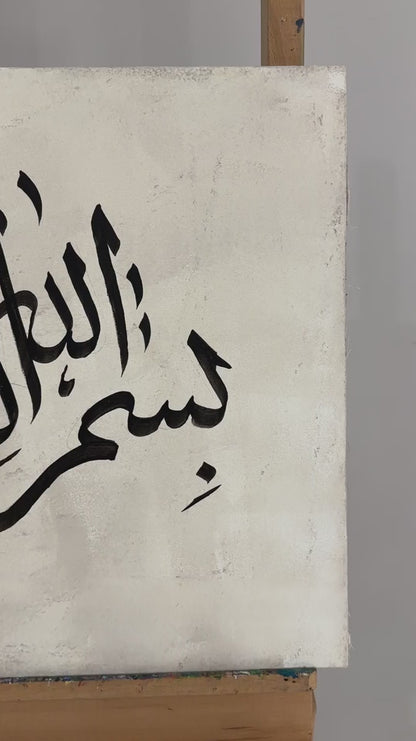 بِسم الله